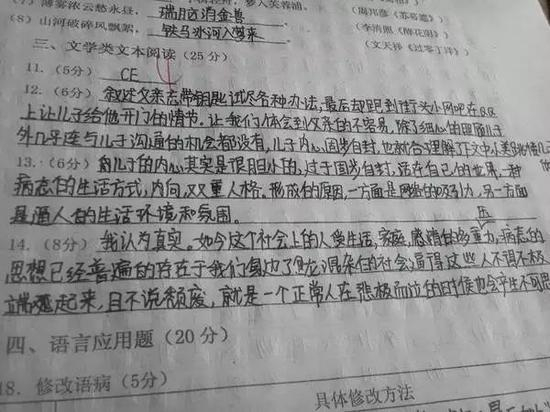 (7) 薄雾浓云愁永昼,瑞脑消金兽。(周邦彦《苏幕遮》)
(8) 山河破碎风飘絮,铁马冰河入梦来。(李清照《醉花阴》)
(文天祥《过零丁洋》)
三、文学类文本阅读(25分)
11.(6分) CE
12.(6分) 叙述父亲忘带钥匙试尽各种办法,最后却跑到街头小网吧在QQ
上让儿子给他开门的情节。让我们体会到父亲的不容易,除了细心的照顾儿子
外几乎连与儿子沟通的机会都没有,儿子内心固步自封,也就合理解
13.(6分) 儿子的内心其实是很胆小的,过于固步自封,活在自己的世界,一种
病态的生活方式,内向,双重人格。形成的原因,一方面是网络的吸引,另一方面
是逼人的生活环境和氛围。
14.(8分) 我认为真实。如今这个社会上的人受生活,家庭,感情的多重压力,病态的
思想已经普遍的存在于我们身边了,鱼龙混杂的社会逼得这些人不得不极
端起来,且不说颓废,就是一个正常人在悲极而泣的时候也会产生不可思
四、语言应用题(20分)
18. 修改语病(5分)
具体修改方法